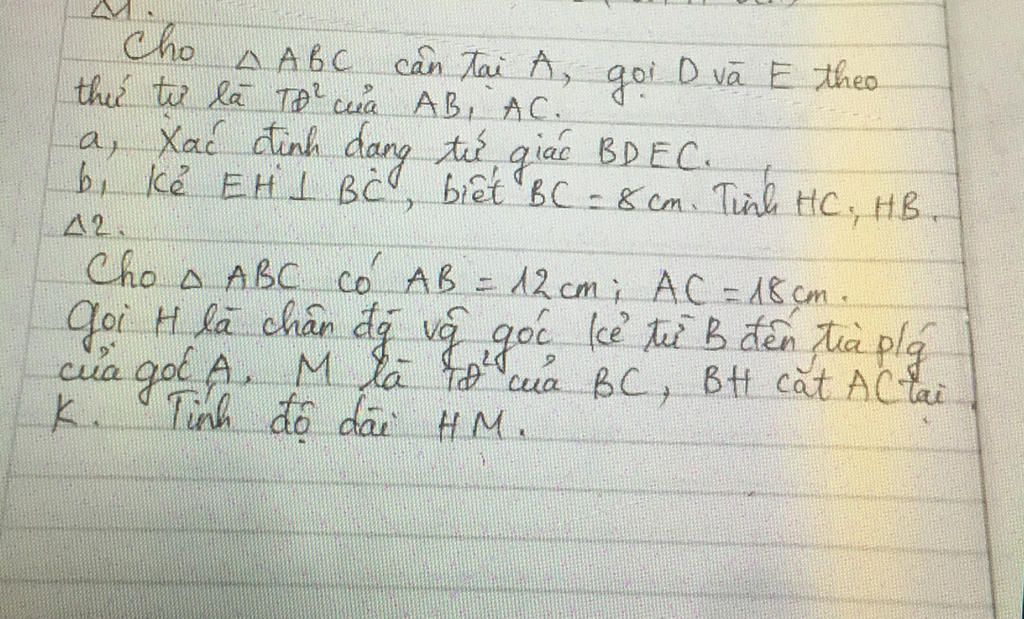 Δ1.
Cho △ ABC cân tại A, gọi D và E theo
thứ tự là TĐ² của AB, AC.
a, Xác định dạng tứ giác BDEC.
b, Kẻ EH ⊥ BC, biết BC = 8 cm. Tính HC, HB.
Δ2.
Cho △ ABC có AB = 12 cm; AC = 18 cm.
Gọi H là chân đg vg góc kẻ từ B đến tia p/g
của góc A. M là TĐ² của BC, BH cắt AC tại
K. Tính độ dài HM.